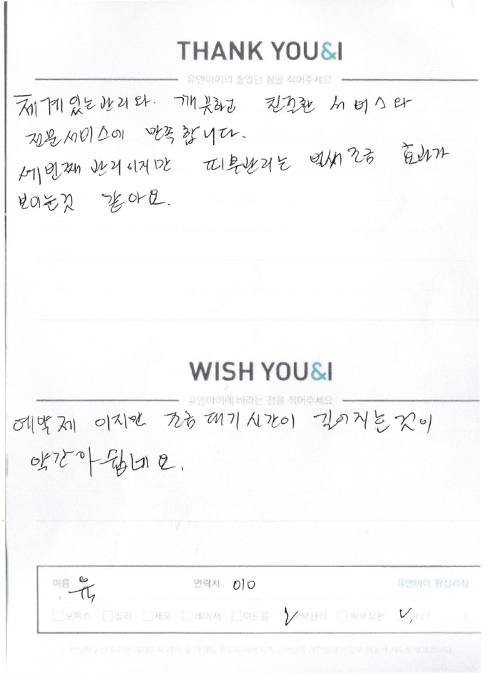 THANK YOU&I
유앤아이의 좋았던 점을 적어주세요
체계있는 관리와 깨끗하고 친절한 서비스와
전문서비스에 만족합니다.
세번째 관리이지만 피부관리는 벌써 조금 효과가
보이는것 같아요.
WISH YOU&I
유앤아이에 바라는 점을 적어주세요
예약제 이지만 조금 대기시간이 길어지는것이
약간 아쉽네요.
이름 육 연락처 010 유앤아이 왕십리점
보톡스 필러 제모 레이저 여드름 피부관리 피부질환 기타( )